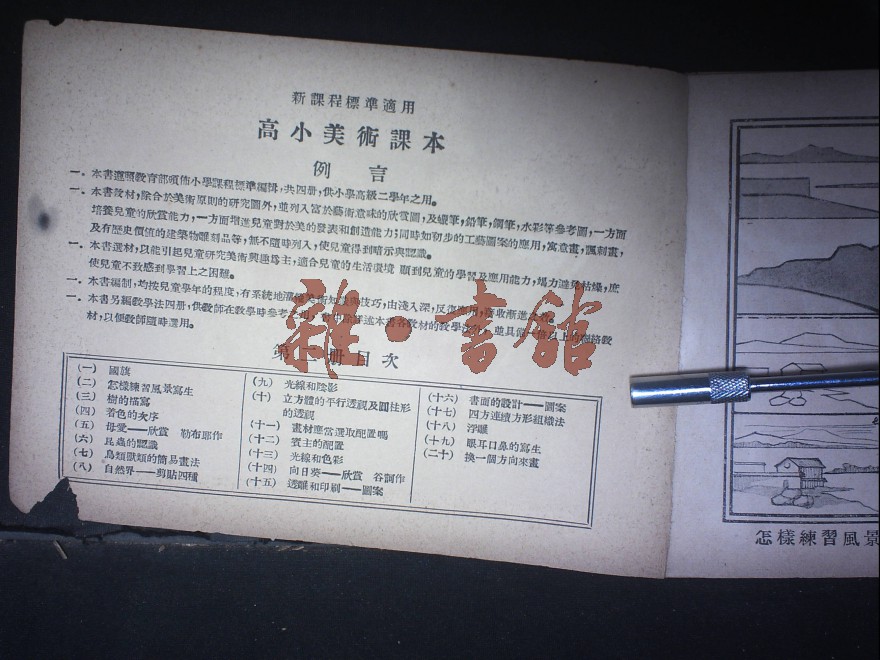 新課程標準適用
高小美術課本
例言
一．本書遵照教育部頒佈小學課程標準編輯，共四册，供小學高級二學年之用。
一．本書教材，除合於美術原則的研究圖外，並列入富於藝術意味的欣賞圖，及蠟筆，鉛筆，鋼筆，水彩等參考圖，一方面
培養兒童的欣賞能力，一方面增進兒童對於美的發表和創造能力；同時如初步的工藝圖案的應用，寓意畫，諷刺畫，
及有歷史價值的建築物雕刻品等，無不隨時列入，使兒童得到暗示與認識。
一．本書選材，以能引起兒童研究美術興趣爲主，適合兒童的生活環境，顧到兒童的學習及應用能力，竭力避免枯燥，庶
使兒童不致感到學習上之困難。
一．本書編制，均按兒童學年的程度，有系統地灌輸美術知識與技巧，由淺入深，反復應用，
一．本書另編教學法四册，供教師在教學時參考之用，述本書各教材的教學
材，以便教師隨時選用。
雜·書舘
第二册目次
（一） 國旗
（二） 怎樣練習風景寫生
（三） 樹的描寫
（四） 着色的次序
（五） 母愛——欣賞 勒布郎作
（六） 昆蟲的認識
（七） 鳥類獸類的簡易畫法
（八） 自然界——剪貼四種
（九） 光線和陰影
（十） 立方體的平行透視及圓柱形
的透視
（十一） 畫材應當選取配置嗎
（十二） 賓主的配置
（十三） 光線和色彩
（十四） 向日葵——欣賞 谷訶作
（十五） 透雕和印刷——圖案
（十六） 書面的設計——圖案
（十七） 四方連續方形組織法
（十八） 浮雕
（十九） 眼耳口鼻的寫生
（二十） 換一個方向來畫
怎樣練習風景